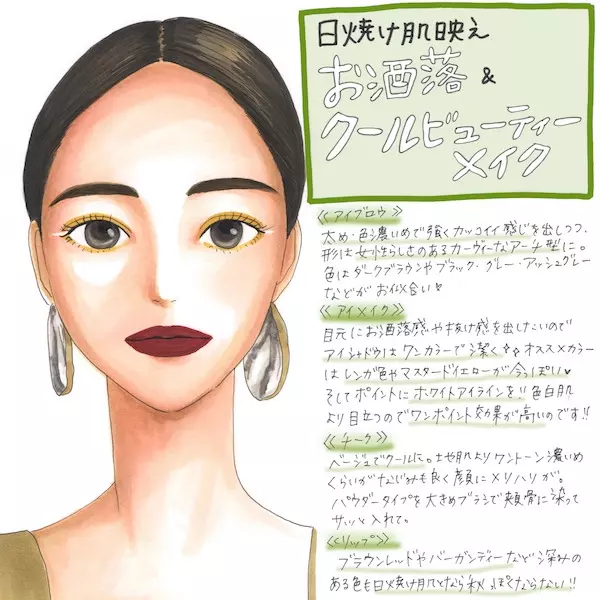 日焼け肌映え
お洒落&
クールビューティー
メイク
《アイブロウ》
太め・色濃いめで強くカッコイイ感じを出しつつ、
形は女性らしさのあるカーヴィーなアーチ型に。
色はダークブラウンやブラック・グレー・アッシュグレー
などがお似合い♡
《アイメイク》
目元にお洒落感や抜け感を出したいので
アイシャドウはワンカラーで潔く☆☆オススメカラー
はレンガ色やマスタードイエローが今っぽい♥
そしてポイントにホワイトアイラインを!!色白肌
より目立つのでワンポイント効果が高いのです!!
《チーク》
ベージュでクールに。地肌よりワントーン濃いめ
くらいがなじみも良く顔にメリハリが。
パウダータイプを大きめブラシで頬骨に添って
サッと入れて。
《リップ》
ブラウンレッドやバーガンディーなど深みの
ある色も日焼け肌となら秋っぽくならない!!